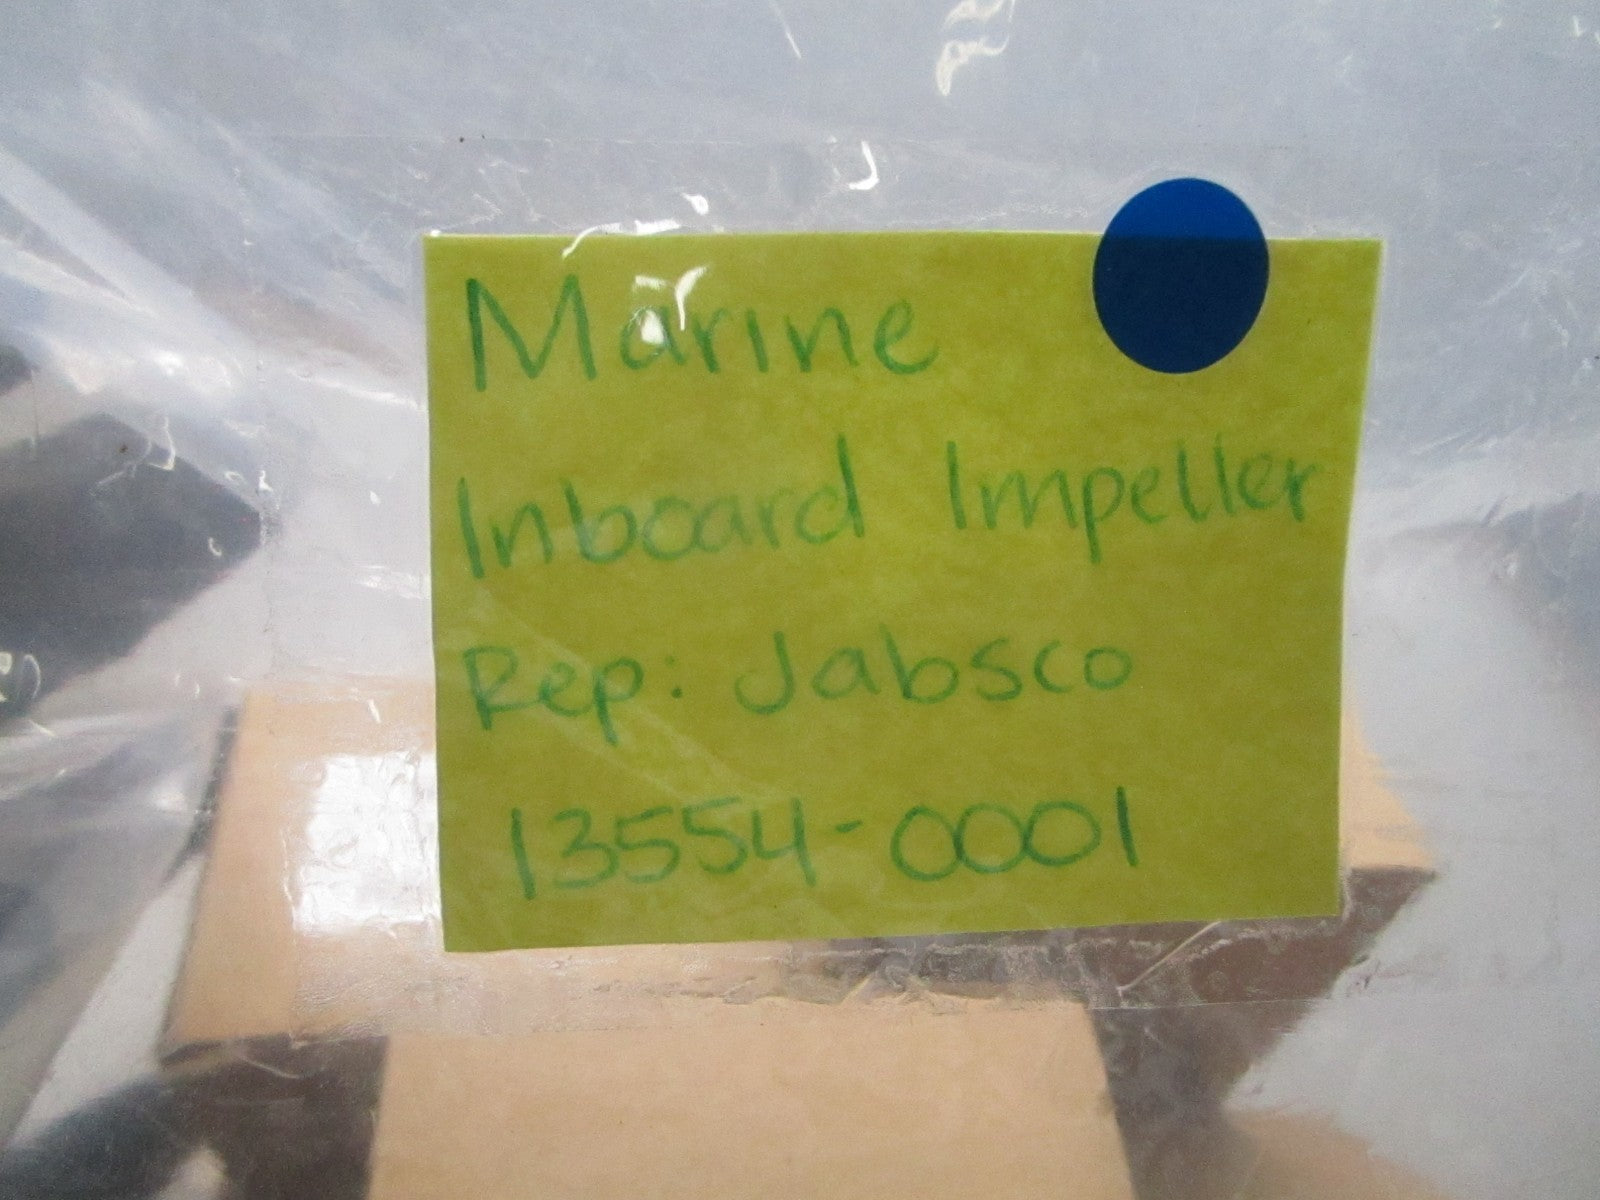 Marine
Inboard Impeller
Rep: Jabsco
13554-0001